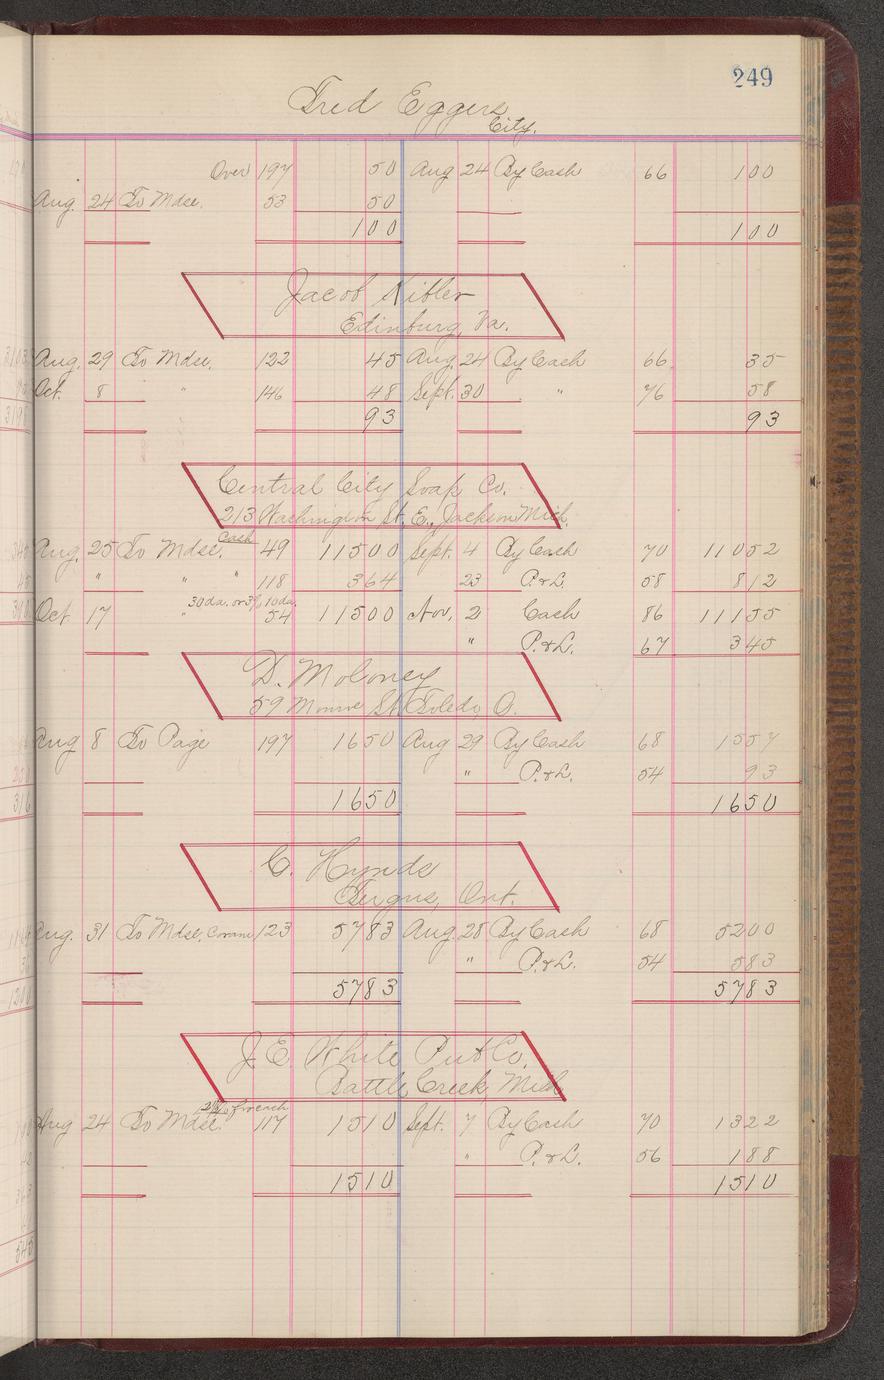 249
Fred Eggers
City.
Over 197 50 Aug 24 By Cash 66 100
Aug. 24 To Mdse. 53 50
100 100
Jacob Kibler
Edinburg, Va.
Aug. 29 To Mdse. 122 45 Aug. 24 By Cash 66 35
Oct. 8 " 146 48 Sept. 30 " 76 58
93 93
Central City Soap Co.
213 Washington St. E., Jackson Mich.
Cash
Aug. 25 To Mdse. 49 11500 Sept. 4 By Cash 70 11052
" " " 118 364 23 P.&L. 58 812
30 da. or 3% 10 da.
Oct 17 " 54 11500 Nov. 2 Cash 86 11155
" P.&L. 67 345
D. Moloney
59 Monroe St. Toledo, O.
Aug 8 To Page 197 1650 Aug 29 By Cash 68 1557
" P.&L. 54 93
1650 1650
C. Hynds
Fergus, Ont.
Aug. 31 To Mdse. 123 5783 Aug. 28 By Cash 68 5200
" P.&L. 54 583
5783 5783
J. E. White Pub Co.
Battle Creek Mich
Aug 24 To Mdse. 117 1510 Sept. 7 By Cash 70 1322
" P.&L. 56 188
1510 1510